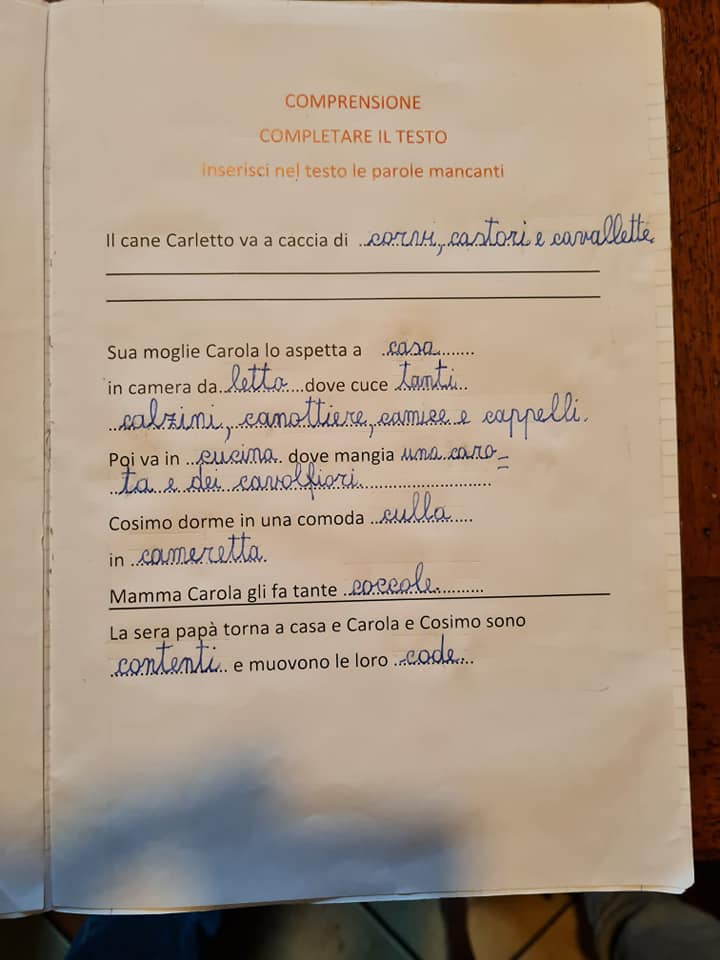 COMPRENSIONE
COMPLETARE IL TESTO
Inserisci nel testo le parole mancanti
Il cane Carletto va a caccia di ..corvi, castori e cavallette.
Sua moglie Carola lo aspetta a ..casa........
in camera da..letto....dove cuce tanti..
..calzini, canottiere, camice e cappelli.
Poi va in ..cucina.. dove mangia una caro=
..ta e dei cavolfiori..........................
Cosimo dorme in una comoda ..culla.....
in ..cameretta.
Mamma Carola gli fa tante ..coccole...........
La sera papà torna a casa e Carola e Cosimo sono
..contenti... e muovono le loro ..code....